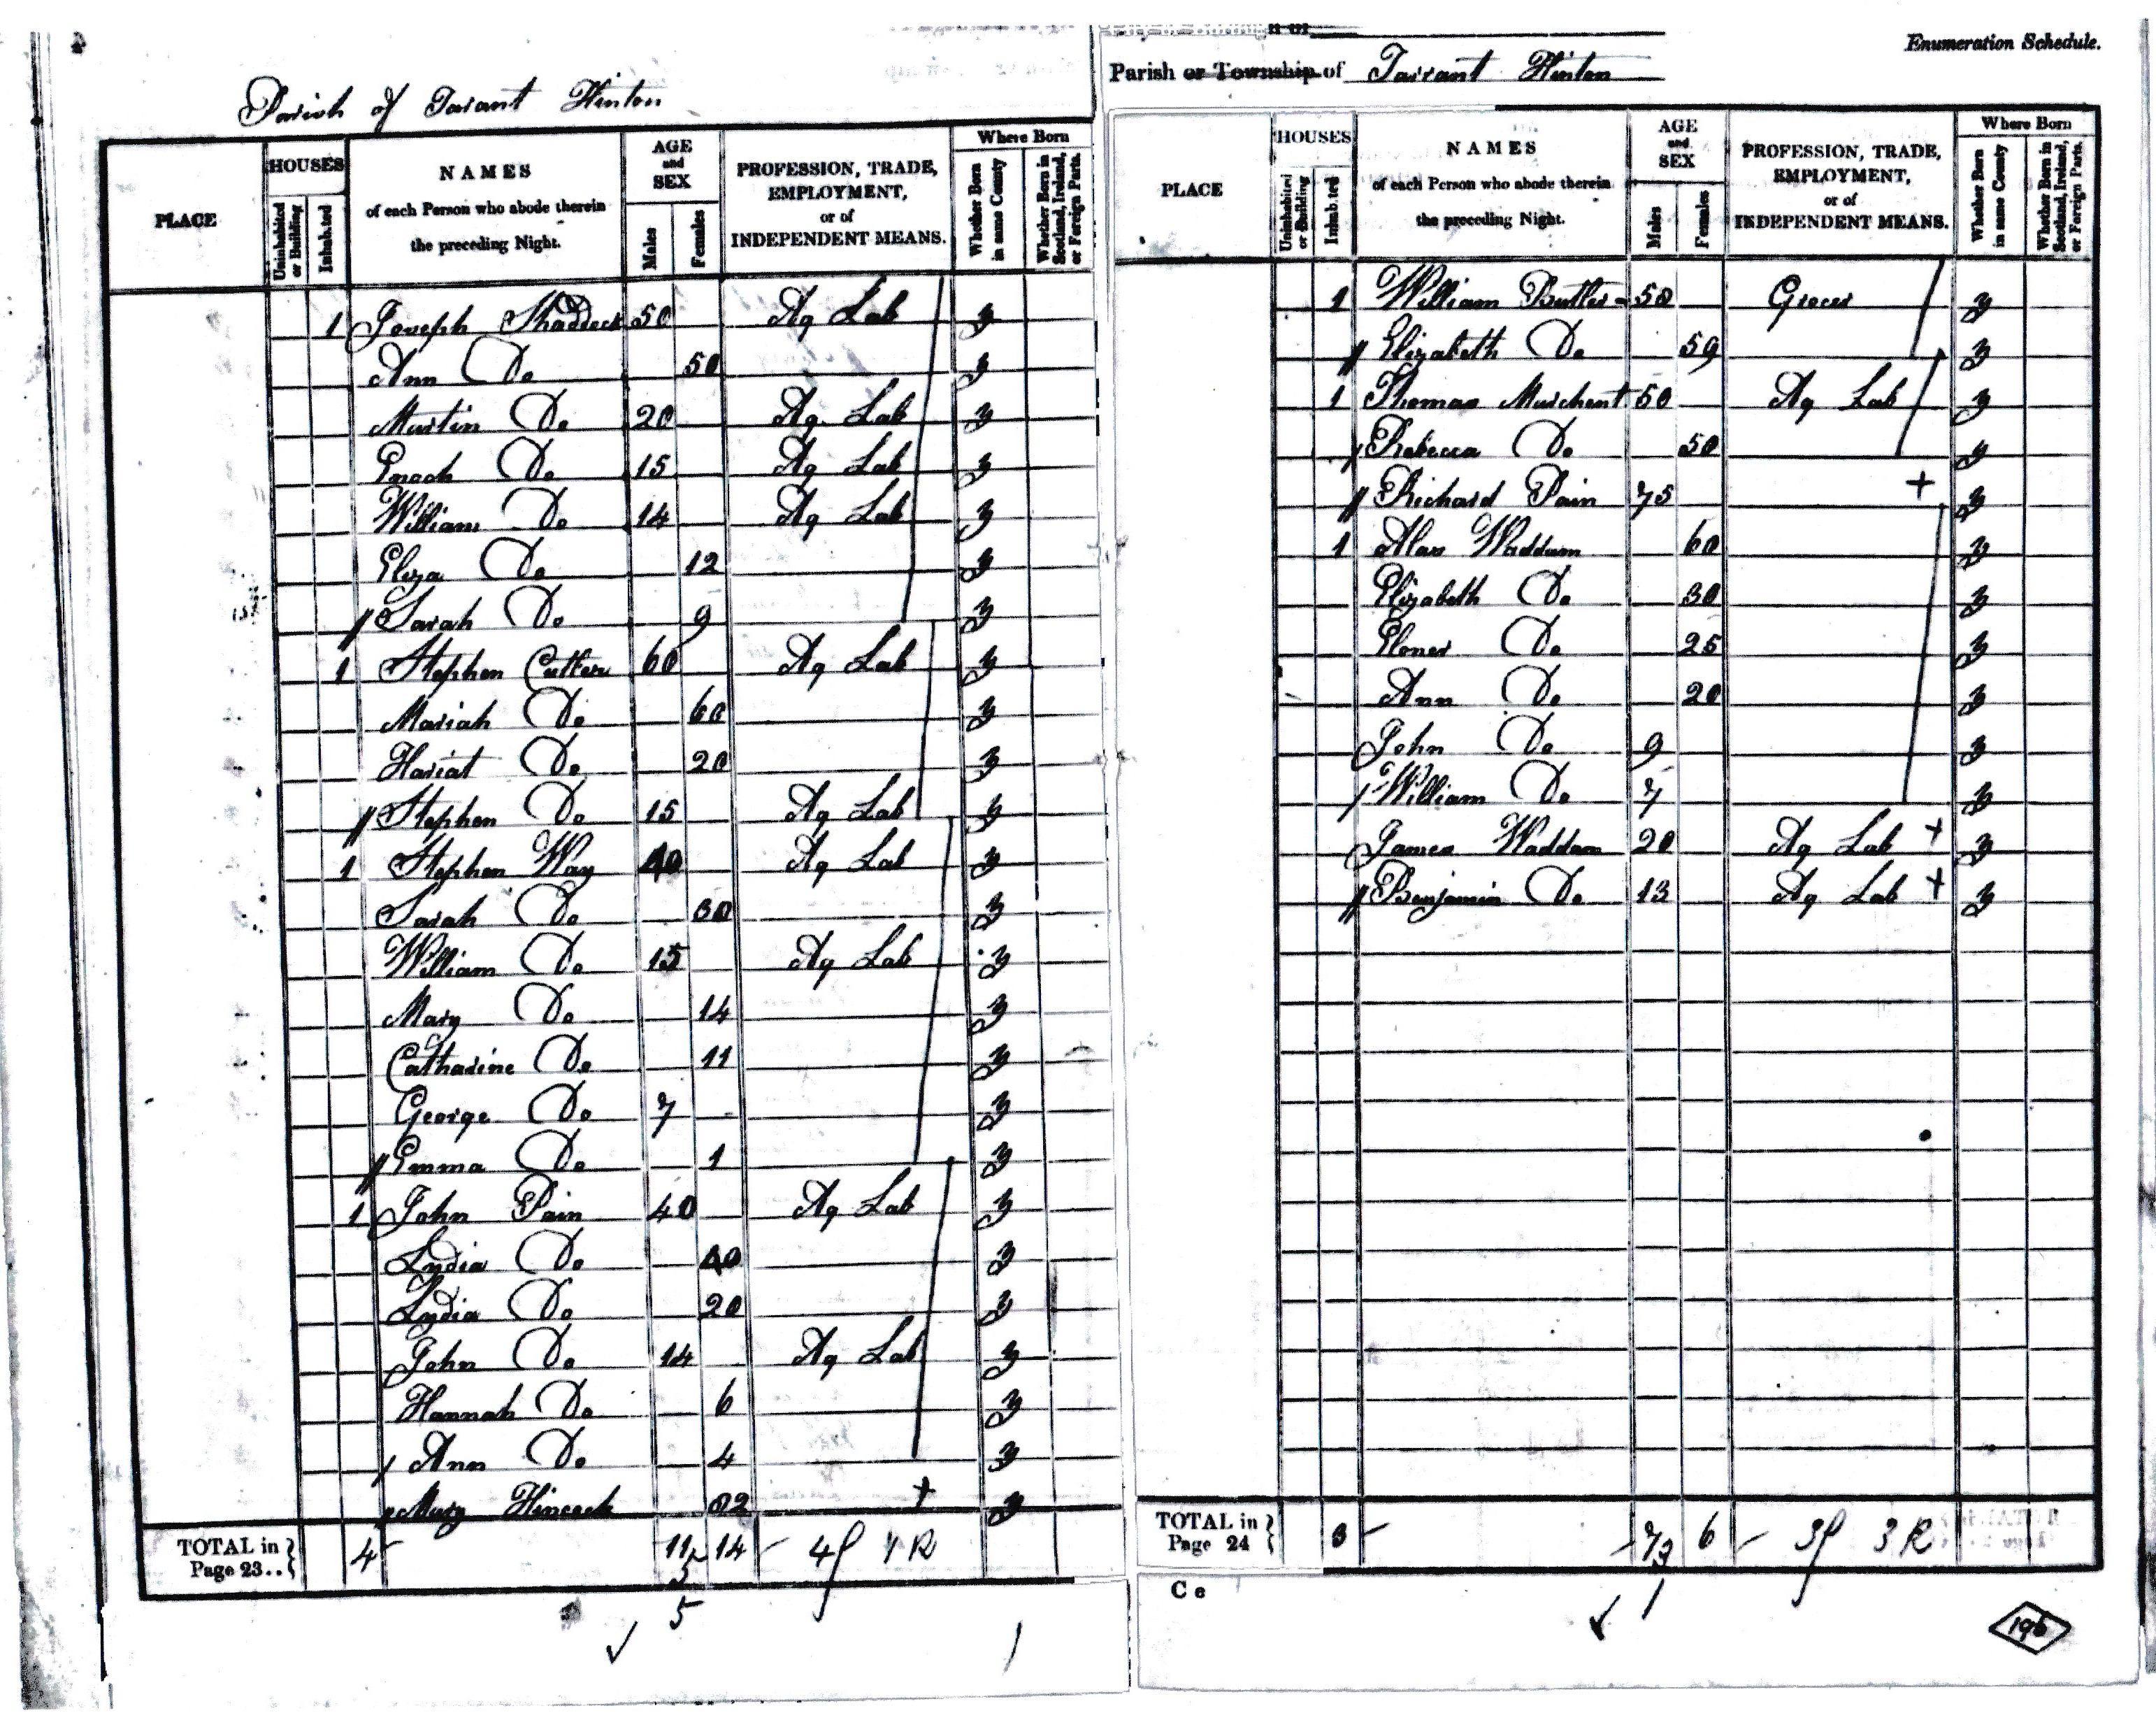 Parish of Tarant Hinton
PLACE
HOUSES
Uninhabited or Building
Inhabited
NAMES
of each Person who abode therein
the preceding Night.
AGE and SEX
Males
Females
PROFESSION, TRADE, EMPLOYMENT, or of INDEPENDENT MEANS.
Where Born
Whether Born in same County
Whether Born in Scotland, Ireland, or Foreign Parts.
1 Joseph Shaddeck 50 Ag Lab y
Ann Do 50 y
Martin Do 20 Ag Lab y
Enoch Do 15 Ag Lab y
William Do 14 Ag Lab y
Eliza Do 12 y
// Sarah Do 9 y
1 Stephen Cutler 60 Ag Lab y
Mariah Do 60 y
Hariat Do 20 y
// Stephen Do 15 Ag Lab y
1 Stephen Way 40 Ag Lab y
Sarah Do 30 y
William Do 15 Ag Lab y
Mary Do 14 y
Catharine Do 11 y
George Do 7 y
// Emma Do 1 y
1 John Pain 40 Ag Lab y
Lydia Do 40 y
Lydia Do 20 y
John Do 14 Ag Lab y
Hannah Do 6 y
/ Ann Do 4 y
Mary Hincock 82 + y
TOTAL in Page 23.. 4 11 14
5
5
Enumeration Schedule.
Parish or Township of Tarrant Hinton
PLACE
HOUSES
Uninhabited or Building
Inhabited
NAMES
of each Person who abode therein
the preceding Night.
AGE and SEX
Males
Females
PROFESSION, TRADE, EMPLOYMENT, or of INDEPENDENT MEANS.
Where Born
Whether Born in same County
Whether Born in Scotland, Ireland, or Foreign Parts.
1 William Butler 50 Grocer y
// Elizabeth Do 59 y
1 Thomas Murchent 50 Ag Lab y
/ Rebecca Do 50 y
// Richard Pain 75 + y
1 Waddum 60 y
Elizabeth Do 30 y
Eloner Do 25 y
Ann Do 20 y
John Do 9 y
/ William Do 7 y
James Waddam 20 Ag Lab + y
// Benjamin Do 13 Ag Lab + y
TOTAL in Page 24 3 7 6
C c
196